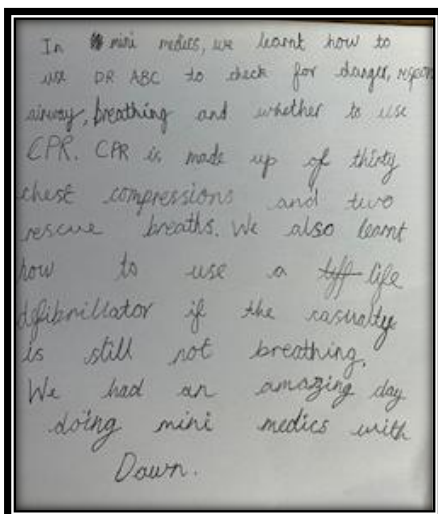 In mini medics, we learnt how to
use DR ABC to check for danger, respon
airway, breathing and whether to use
CPR. CPR is made up of thirty
chest compressions and two
rescue breaths. We also learnt
how to use a life
defibrillator if the casualty
is still not breathing.
We had an amazing day
doing mini medics with
Dawn.